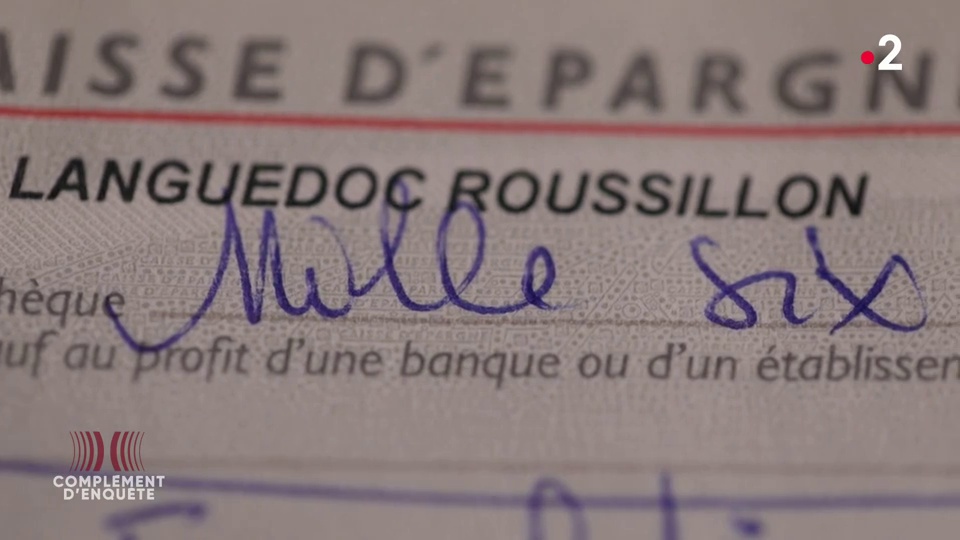 2
AISSE D'EPARGN
LANGUEDOC ROUSSILLON
hèque Mille six
uf au profit d'une banque ou d'un établissem
COMPLÉMENT
D'ENQUÊTE